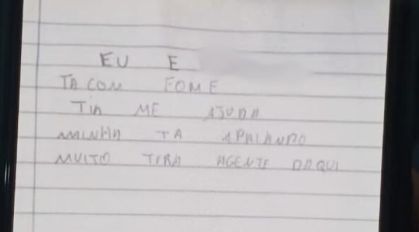 EU E
TA COM FOME
TIA ME AJUDA
MINHA TA APALANDO
MUITO TIRA AGENTE DAQUI